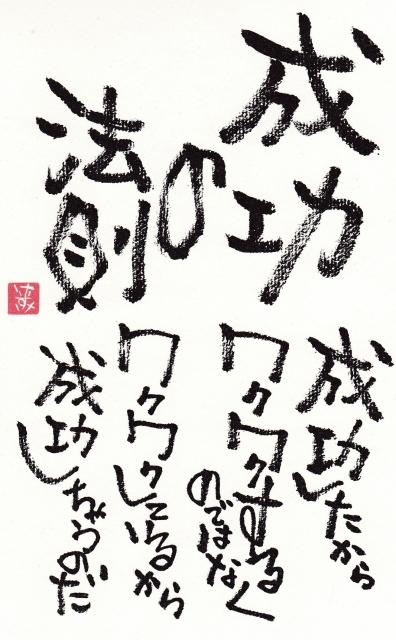 成功
の
法則
成功したから
ワクワクする
のではなく
ワクワクしているから
成功しちゃうのだ